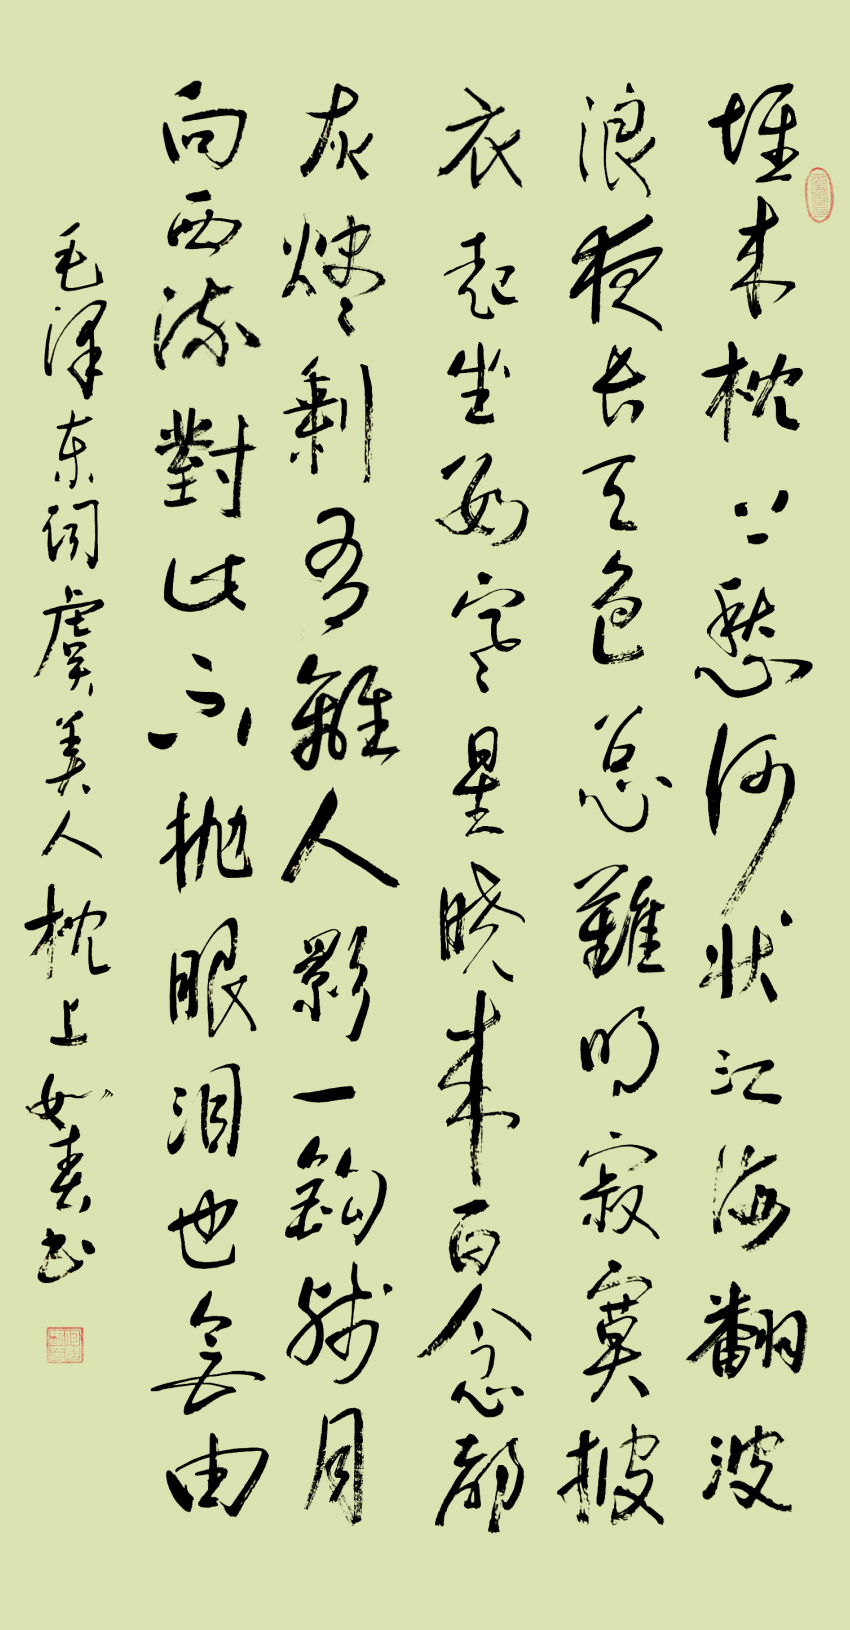 堆来枕上愁何状江海翻波
浪夜长天色总難明寂寞披
衣起坐数寒星晓来百念都
灰烬剩有離人影一钩残月
向西流對此不抛眼泪也无由
毛泽东词虞美人枕上如春书